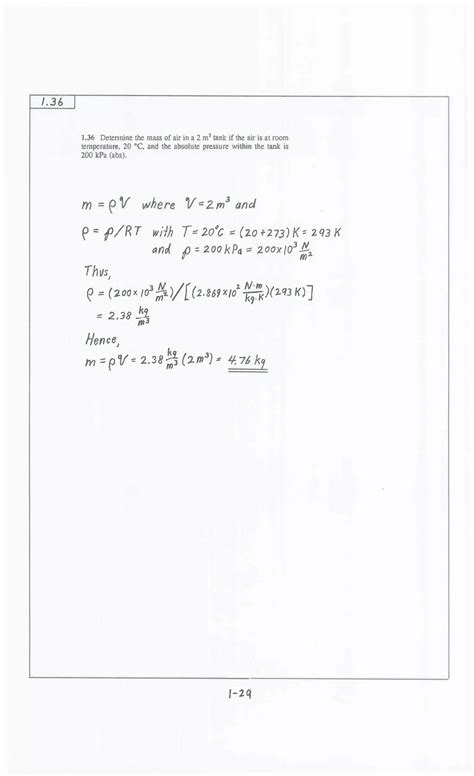 1.36
1.36 Determine the mass of air in a 2 m³ tank if the air is at room
temperature, 20 °C, and the absolute pressure within the tank is
200 kPa (abs).
m = ρV where V = 2 m³ and
ρ = p/RT with T = 20°C = (20 + 273) K = 293 K
and p = 200 kPa = 200 x 10³ N/m²
Thus,
ρ = (200 x 10³ N/m²)/[(2.869 x 10² N·m/kg·K)(293 K)]
= 2.38 kg/m³
Hence,
m = ρV = 2.38 kg/m³ (2 m³) = 4.76 kg
1-29